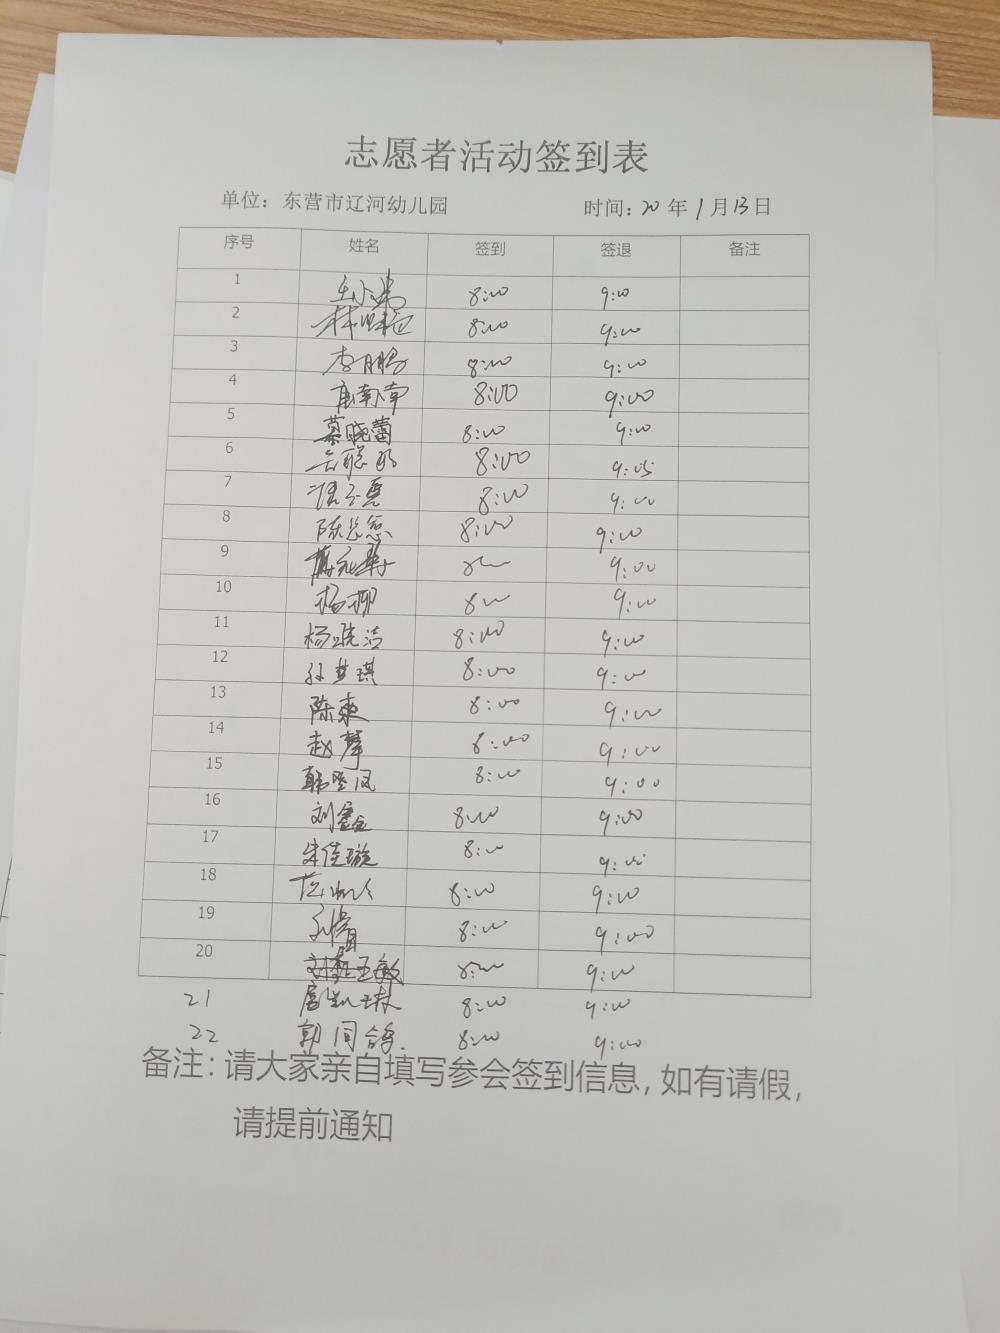 志愿者活动签到表
单位：东营市辽河幼儿园 时间：20年1月13日
序号 姓名 签到 签退 备注
1 8:00 9:00
2 8:00 9:00
3 李月 8:00 9:00
4 8:00 9:00
5 慕晓蕾 8:00 9:00
6 8:00 9:05
7 8:00 9:00
8 陈 8:00 9:00
9 9:00
10 杨柳 8:00 9:00
11 杨晓洁 8:00 9:00
12 孙梦琪 8:00 9:00
13 陈爽 8:00 9:00
14 赵琴 8:00 9:00
15 韩 凤 8:00 9:00
16 刘鑫 8:00 9:00
17 朱佳璇 8:00 9:00
18 8:00 9:00
19 孙倩 8:00 9:00
20 王敏 8:00 9:00
21 8:00 9:00
22 郭 8:00 9:00
备注：请大家亲自填写参会签到信息，如有请假，
请提前通知